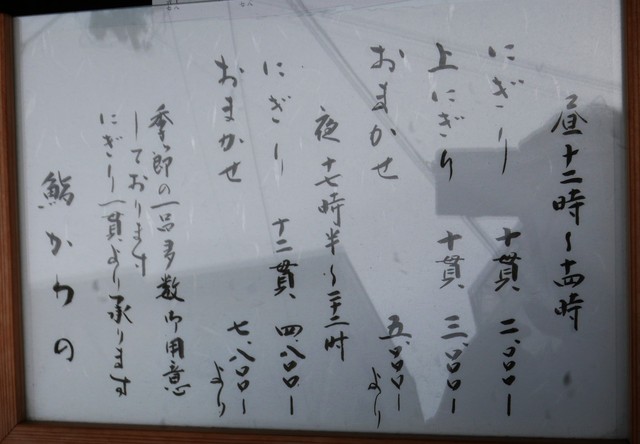 昼十二時〜十四時
にぎり 十貫 二、〇〇〇ー
上にぎり 十貫 三、〇〇〇ー
おまかせ 五、〇〇〇ーより
夜十七時半〜二十二時
にぎり 十二貫 四、八〇〇ー
おまかせ 七、八〇〇ーより
季節の一品多数御用意
しております
にぎり一貫より承ります
鮨かわの